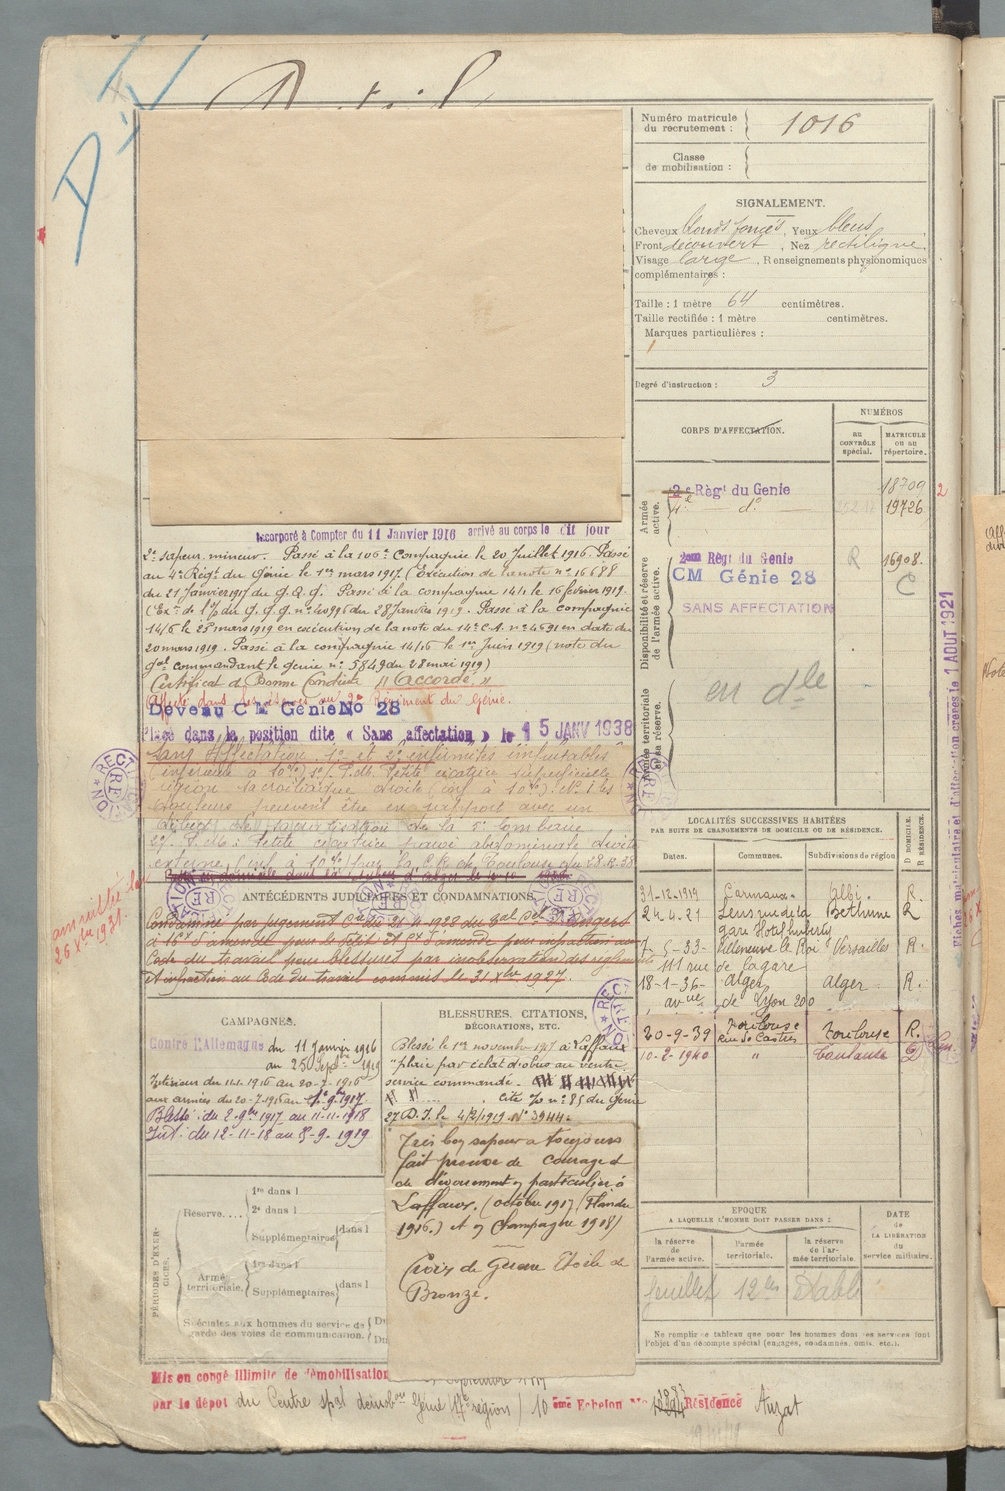 Numéro matricule
du recrutement : 1016
Classe
de mobilisation :
SIGNALEMENT.
Cheveux blonds foncés, Yeux bleus
Front découvert, Nez rectiligne
Visage large, Renseignements physionomiques
complémentaires :
Taille : 1 mètre 64 centimètres.
Taille rectifiée : 1 mètre centimètres.
Marques particulières :
Degré d'instruction : 3
CORPS D'AFFECTATION.
NUMÉROS
au
CONTRÔLE
spécial.
MATRICULE
ou au
répertoire.
Armée
active.
2e Régt du Génie 18709
4e do 19726
Disponibilité et réserve
de l'armée active.
2eme Régt du Genie R 16908
CM Génie 28 C
SANS AFFECTATION
Armée territoriale
et sa réserve.
en dle
Incorporé à Compter du 11 Janvier 1916 arrivé au corps le dit jour
2e sapeur mineur. Passé à la 106e Compagnie le 20 Juillet 1916. Passé
au 4e Régt du Génie le 1er mars 1917. (Exécution de la note no 16688
du 21 janvier 1917 du G.Q.G. Passé à la compagnie 14/1 le 16 février 1919.
du G.Q.G. no 40996 du 28 Janvier 1919. Passé à la compagnie
14/6 le 25 mars 1919 en exécution de la note du 14e C.A. no 4591 en date du
20 mars 1919. Passé à la compagnie 14/16 le 1er Juin 1919 (note du
Gal commandant le génie no 5849 du 28 mai 1919)
Certificat de Bonne Conduite " Accordé. "
Affecté dans les réserves au 2e Régiment du Génie.
Devenu CM Génie No 28
Placé dans la position dite « Sans affectation » le 15 JANV 1938
Sans Affectation 1o et 2o infirmités imputables
(inférieure à 10%) Petite cicatrice superficielle
région sacroiliaque droite (inf à 10%). N. les
douleurs peuvent être en rapport avec un
début de sacralisation de la 5e lombaire
Petite cicatrice paroi abdominale droite
externe (inf à 10%) par la C.R. de Toulouse du 28.12.38
ANTÉCÉDENTS JUDICIAIRES ET CONDAMNATIONS.
amnistié
26 Xbre 1931.
Condamné par jugement du 21.4.1928 du d'Angers
à 16f d'amende pour le délit et 5f d'amende pour infraction au
Code du travail pour blessures par inobservation des règlements
et infraction au Code du travail commis le 21 Xbre 1927.
LOCALITÉS SUCCESSIVES HABITÉES
PAR SUITE DE CHANGEMENTS DE DOMICILE OU DE RÉSIDENCE.
Dates. Communes. Subdivisions de région D DOMICILE. R RÉSIDENCE.
31-12-1919 Carmaux Albi R.
24.4.21 Lens rue de la Béthune R
gare
7-5-33 Villeneuve le Roi Versailles R.
111 rue de la gare
18-1-36 Alger Alger R.
avue de Lyon 200
20-9-39 Toulouse Toulouse R.
Rue de Castres
10-2-1940 " Toulouse D
CAMPAGNES.
Contre l'Allemagne du 11 Janvier 1916
au 25 Septbre 1919
Intérieur du 11.1.1916 au 20-7-1916
aux armées du 20-7-1916 au 1-9-1917
Blessé : du 2-9bre 1917 au 11-11-1918
Int. : du 12-11-18 au 8-9-1919
BLESSURES, CITATIONS,
DÉCORATIONS, ETC.
Blessé le 1er novembre 1917 à Laffaux
"plaie par éclat d'obus au ventre
service commandé.
Cité no 85 du Génie
27 D.I. le 4/2/1919 No 3944.
Très bon sapeur a toujours
fait preuve de courage et
de dévouement en particulier à
Laffaux. (octobre 1917) (Flandre
1916.) et en Champagne 1918)
Croix de Guerre Etoile de
Bronze.
PÉRIODES D'EXERCICES.
Réserve....
1re dans l
2e dans l
Supplémentaires dans l
Armée
territoriale.
1re dans l
Supplémentaires dans l
Spéciales aux hommes du service de
garde des voies de communication.
Du
Du
EPOQUE
A LAQUELLE L'HOMME DOIT PASSER DANS :
la réserve de
l'armée active.
l'armée
territoriale.
la réserve
de l'armée territoriale.
DATE
de
LA LIBÉRATION
du
service militaire.
Ne remplir ce tableau que pour les hommes dont les services font
l'objet d'un décompte spécial (engagés, condamnés, omis, etc.).
Fiches matriculaire et d'affectation créées le 1 AOUT 1921
Mis en congé illimité de démobilisation
par le dépôt du Centre spal démobon Génie 17e région) 10 ème Echelon No Résidence Auzat